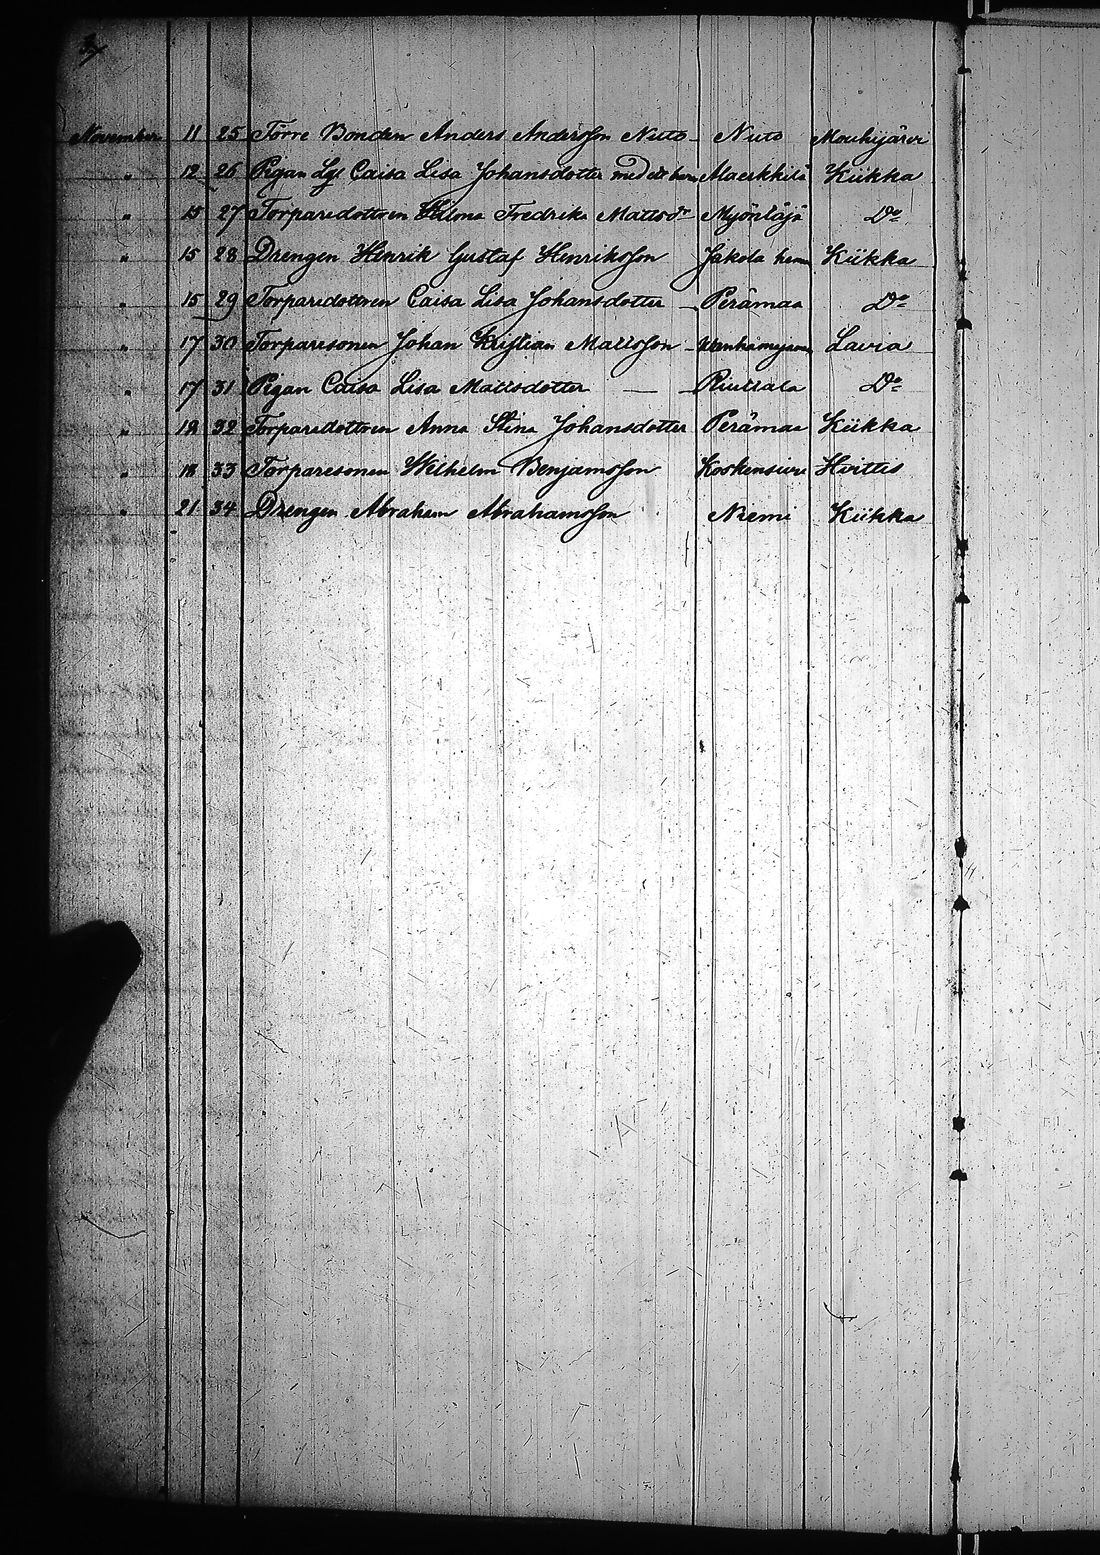 November 11 25 Förre Bonden Anders Andersson Nuto Nuto Mouhijärvi
" 12 26 Pigan Lgl Caisa Lisa Johansdotter med ett barn Maerkkilä Kiikka
" 15 27 Torparedottren Fredrika Mattsdr Myöntäjä Do
" 15 28 Drengen Henrik Gustaf Henriksson Jakola hem Kiikka
" 15 29 Torparedottren Caisa Lisa Johansdotter Perämaa Do
" 17 30 Torparesonen Johan Kristian Mattsson Lavia
" 17 31 Pigan Caisa Lisa Mattsdotter — Riuttala Do
" 18 32 Torparedottren Anna Stina Johansdotter Perämaa Kiikka
" 18 33 Torparesonen Wilhelm Benjamsson Hvittis
" 21 34 Drengen Abraham Abrahamsson Niemi Kiikka